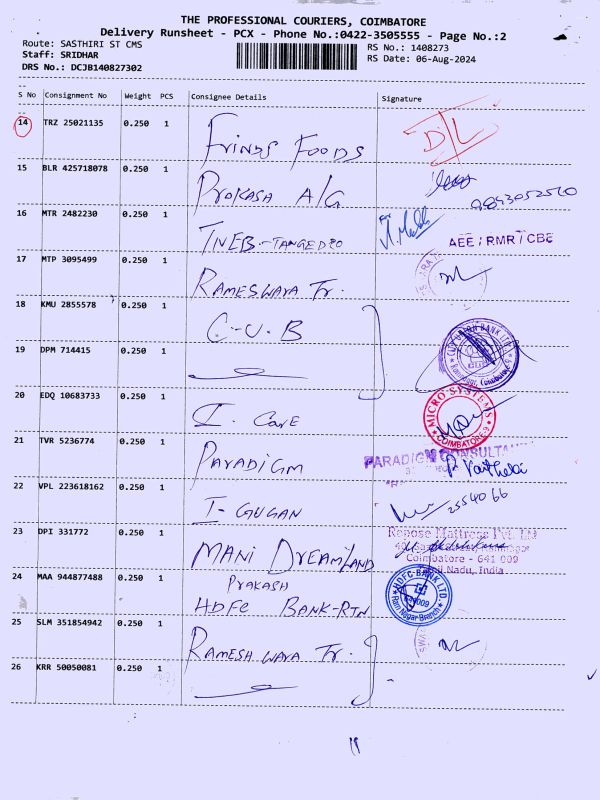 THE PROFESSIONAL COURIERS, COIMBATORE
Delivery Runsheet - PCX - Phone No.:0422-3505555 - Page No.:2
Route: SASTHIRI ST CMS
RS No.: 1408273
Staff: SRIDHAR
RS Date: 06-Aug-2024
DRS No.: DCJB140827302
S No Consignment No Weight PCS Consignee Details Signature
14 TRZ 25021135 0.250 1 FRINDS FOODS D/L
15 BLR 425718078 0.250 1 PROKASA A/G
16 MTR 2482230 0.250 1 TNEB-TANGEDCO
AEE / RMR / CBE
17 MTP 3095499 0.250 1 RAMESWARA Tr.
18 KMU 2855578 0.250 1 C-U-B
CITY UNION BANK LTD
19 DPM 714415 0.250 1
20 EDQ 10683733 0.250 1 I. CARE
MICRO SYSTEMS
COIMBATORE-9
21 TVR 5236774 0.250 1 PARADIGM
PARADIGM CONSULTA
22 VPL 223618162 0.250 1 I-GUGAN
2554066
23 DPI 331772 0.250 1 MANI DREAMLAND
Repose Mattress Pvt. Ltd
Coimbatore - 641 009
Tamil Nadu, India
PRAKASH
24 MAA 944877488 0.250 1 HDFC BANK-RTN
HDFC BANK LTD.
Ram Nagar Branch
25 SLM 351854942 0.250 1 RAMESHWARA Tr.
26 KRR 50050081 0.250 1